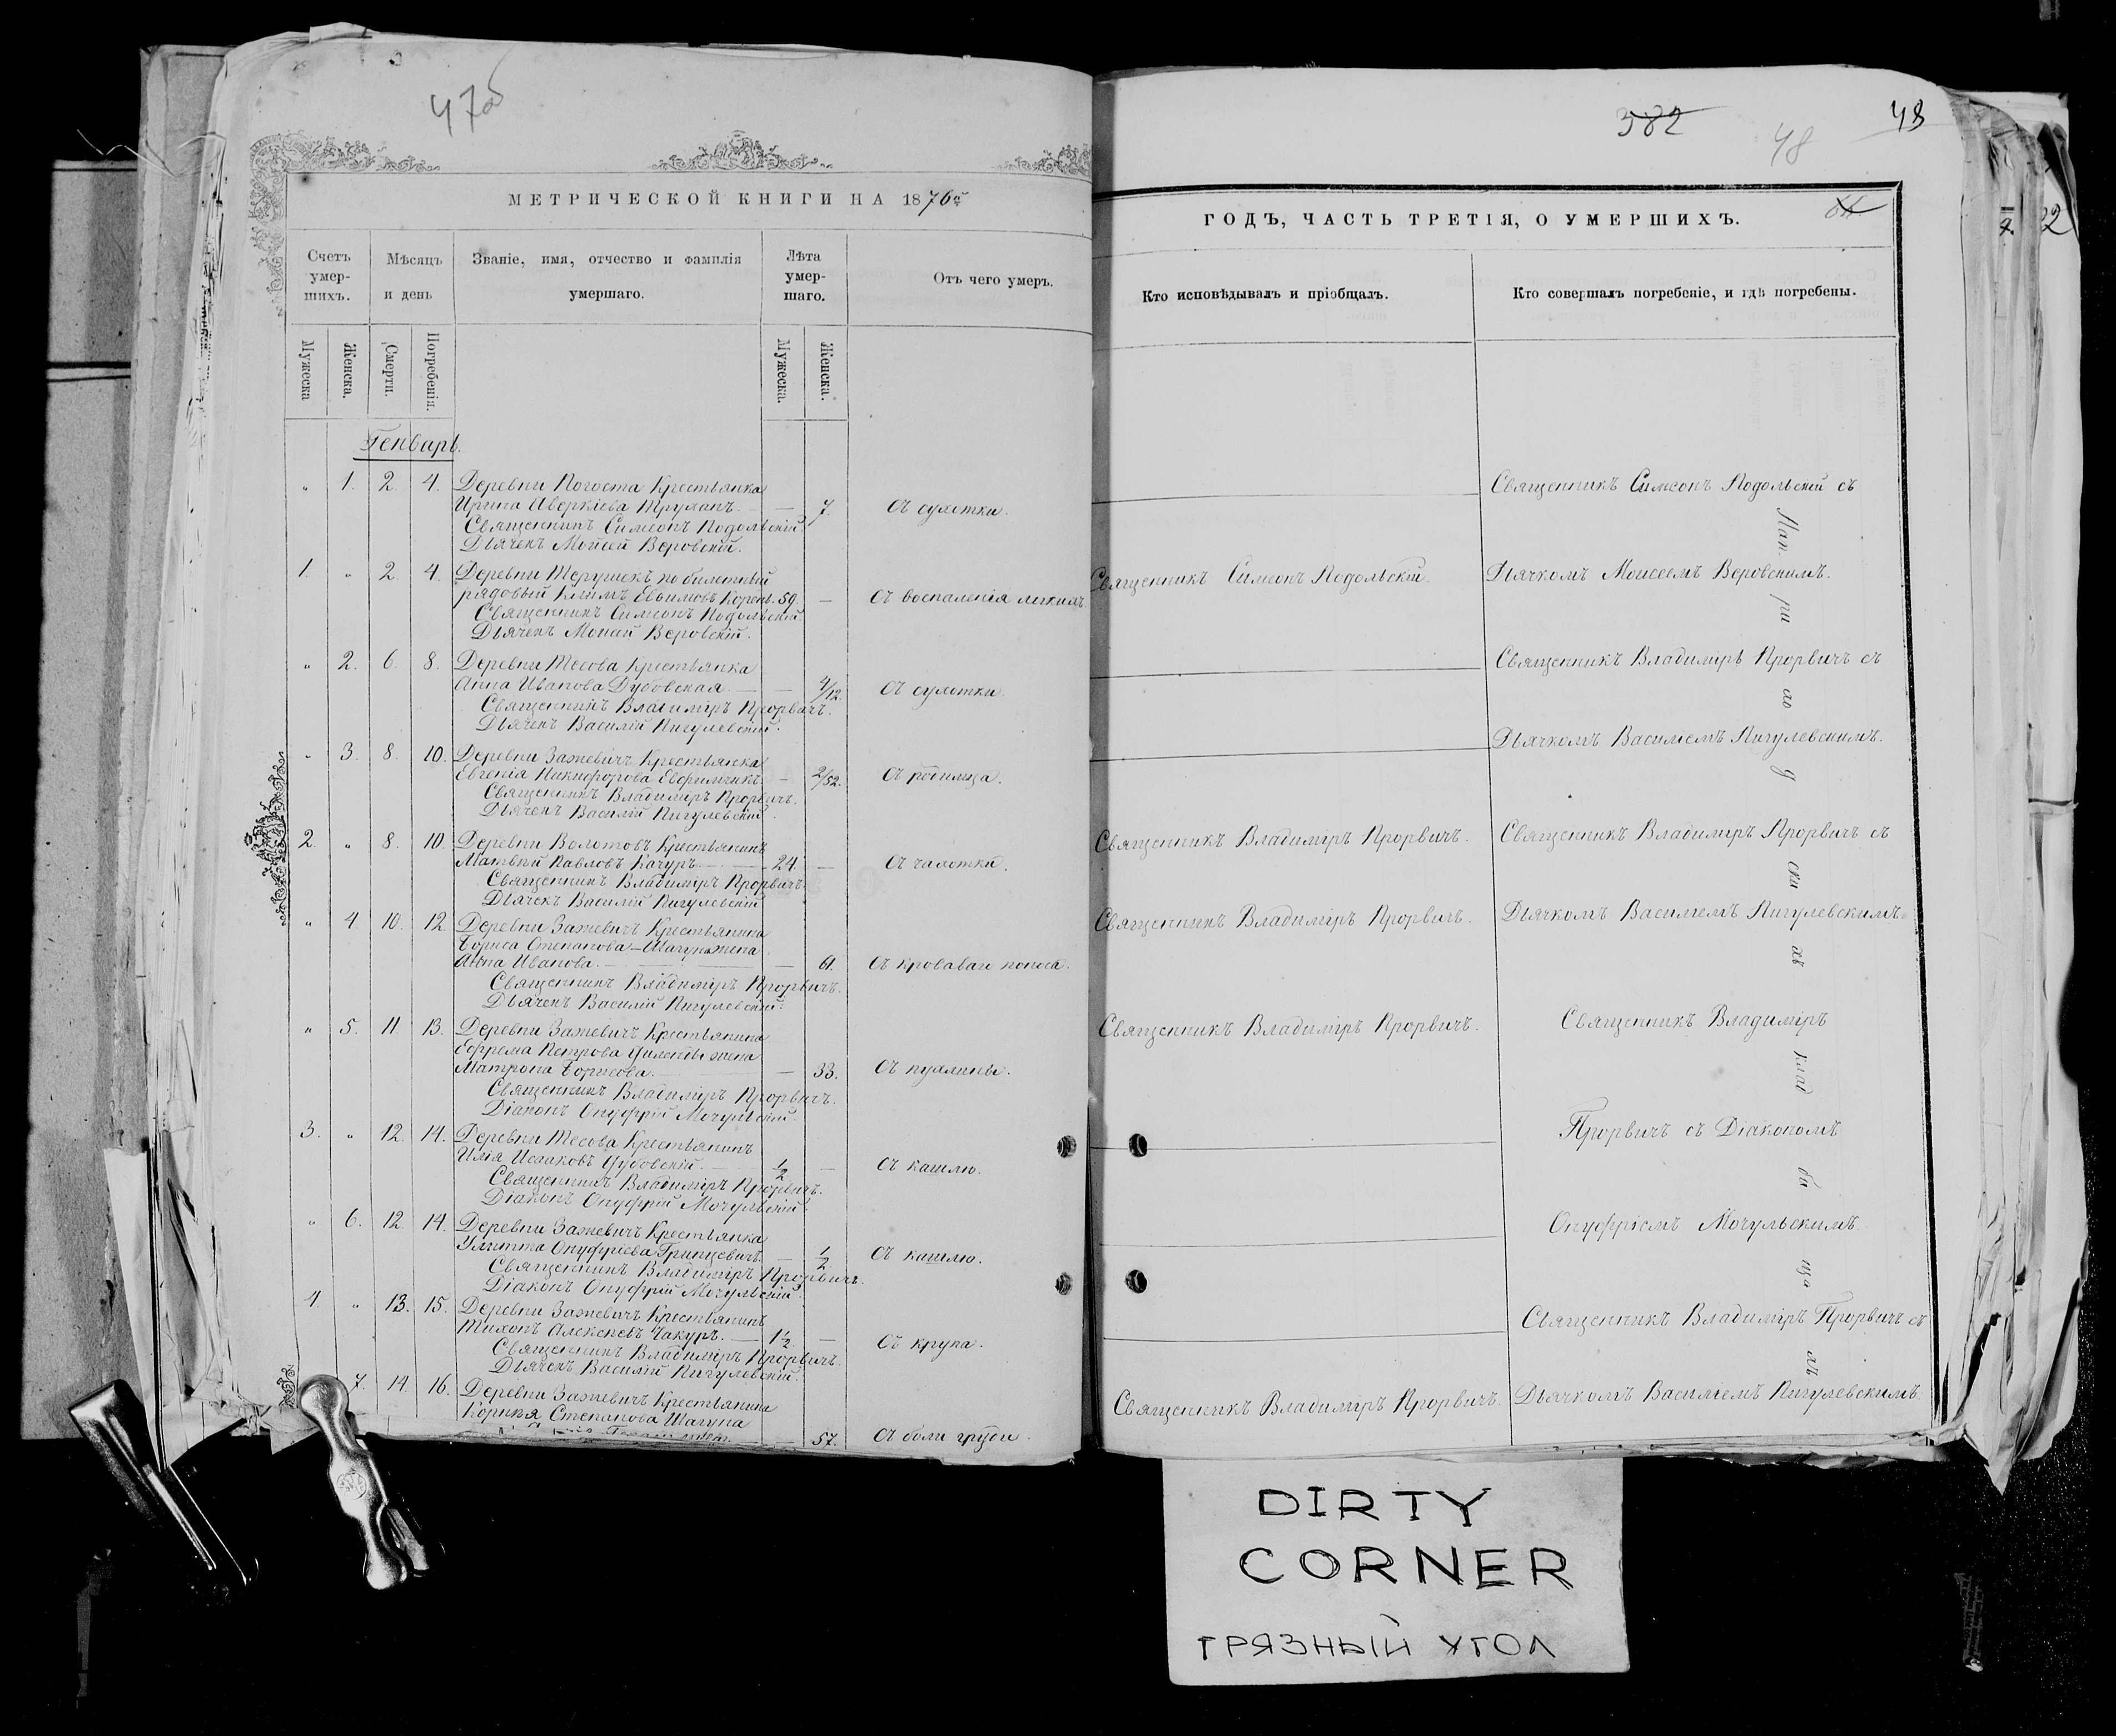 47об
МЕТРИЧЕСКОЙ КНИГИ НА 1876й
Счетъ умершихъ.
Мѣсяцъ и день
Званіе, имя, отчество и фамилія умершаго.
Лѣта умершаго.
Отъ чего умеръ.
Мужеска
Женска.
Смерти.
Погребенія.
Мужеска.
Женска.
Генварь.
„ 1. 2. 4. Деревни Погоста Крестьянка
Ирина Аверкіева Труханъ. — 7. Съ сухотки.
Священникъ Симеонъ Подольскій.
Дьячекъ Моисей Веровскій.
1. „ 2. 4. Деревни Терушекъ по билетный
рядовый Климъ Евѳимовъ Корень. 59. — Съ воспаленія легкихъ.
Священникъ Симеонъ Подольскій.
Дьячекъ Моисей Веровскій.
„ 2. 6. 8. Деревни Тесова Крестьянка
Анна Иванова Дубовская. — 4/12. Съ сухотки.
Священникъ Владиміръ Прорвичъ.
Дьячекъ Василій Пигулевскій.
„ 3. 8. 10. Деревни Зажевичъ Крестьянка
Евгенія Никифорова Ефимчикъ. — 2/52. Съ родимца.
Священникъ Владиміръ Прорвичъ.
Дьячекъ Василій Пигулевскій.
2. „ 8. 10. Деревни Долотовъ Крестьянинъ
Матвѣй Павловъ Качуръ. — 24. — Съ чахотки.
Священникъ Владиміръ Прорвичъ.
Дьячекъ Василій Пигулевскій
„ 4. 10. 12. Деревни Зажевичъ Крестьянина
Бориса Степанова Шагуна жена
Анна Иванова. — 61. Съ кроваваго поноса.
Священникъ Владиміръ Прорвичъ.
Дьячекъ Василій Пигулевскій.
„ 5. 11 13. Деревни Зажевичъ Крестьянина
Ефрема Петрова жена
Матрона Борисова. — 33. Съ пухлины.
Священникъ Владиміръ Прорвичъ.
Діаконъ Онуфрій Мочульскій.
3. „ 12. 14. Деревни Тесова Крестьянинъ
Илія Исааковъ Дубовскій. — 1/2 — Съ кашлю.
Священникъ Владиміръ Прорвичъ.
Діаконъ Онуфрій Мочульскій.
„ 6. 12. 14. Деревни Зажевичъ Крестьянка
Улитта Онуфріева Грицевичъ. — 1/2 Съ кашлю.
Священникъ Владиміръ Прорвичъ.
Діаконъ Онуфрій Мочульскій.
4. „ 13. 15. Деревни Зажевичъ Крестьянинъ
Тихонъ Алексѣевъ Чакуръ. — 1 1/2. — Съ крупа.
Священникъ Владиміръ Прорвичъ.
Дьячекъ Василій Пигулевскій.
7. 14. 16. Деревни Зажевичъ Крестьянина
Корнѣя Степанова Шагуна
57. Съ боли груди.
382
48
48
ГОДЪ, ЧАСТЬ ТРЕТІЯ, О УМЕРШИХЪ.
Кто исповѣдывалъ и пріобщалъ.
Кто совершалъ погребеніе, и гдѣ погребены.
Священникъ Симеонъ Подольскій съ
Священникъ Симеонъ Подольскій.
Дьячкомъ Моисеемъ Веровскимъ.
Священникъ Владиміръ Прорвичъ съ
Дьячкомъ Василіемъ Пигулевскимъ.
Священникъ Владиміръ Прорвичъ.
Священникъ Владиміръ Прорвичъ съ
Священникъ Владиміръ Прорвичъ.
Дьячкомъ Василіемъ Пигулевскимъ.
Священникъ Владиміръ Прорвичъ.
Священникъ Владиміръ
Прорвичъ съ Діакономъ
Онуфріемъ Мочульскимъ.
Священникъ Владиміръ Прорвичъ съ
Священникъ Владиміръ Прорвичъ.
Дьячкомъ Василіемъ Пигулевскимъ.
На при хо д ски хъ клад би ща хъ
DIRTY
CORNER
ГРЯЗНЫЙ УГОЛ